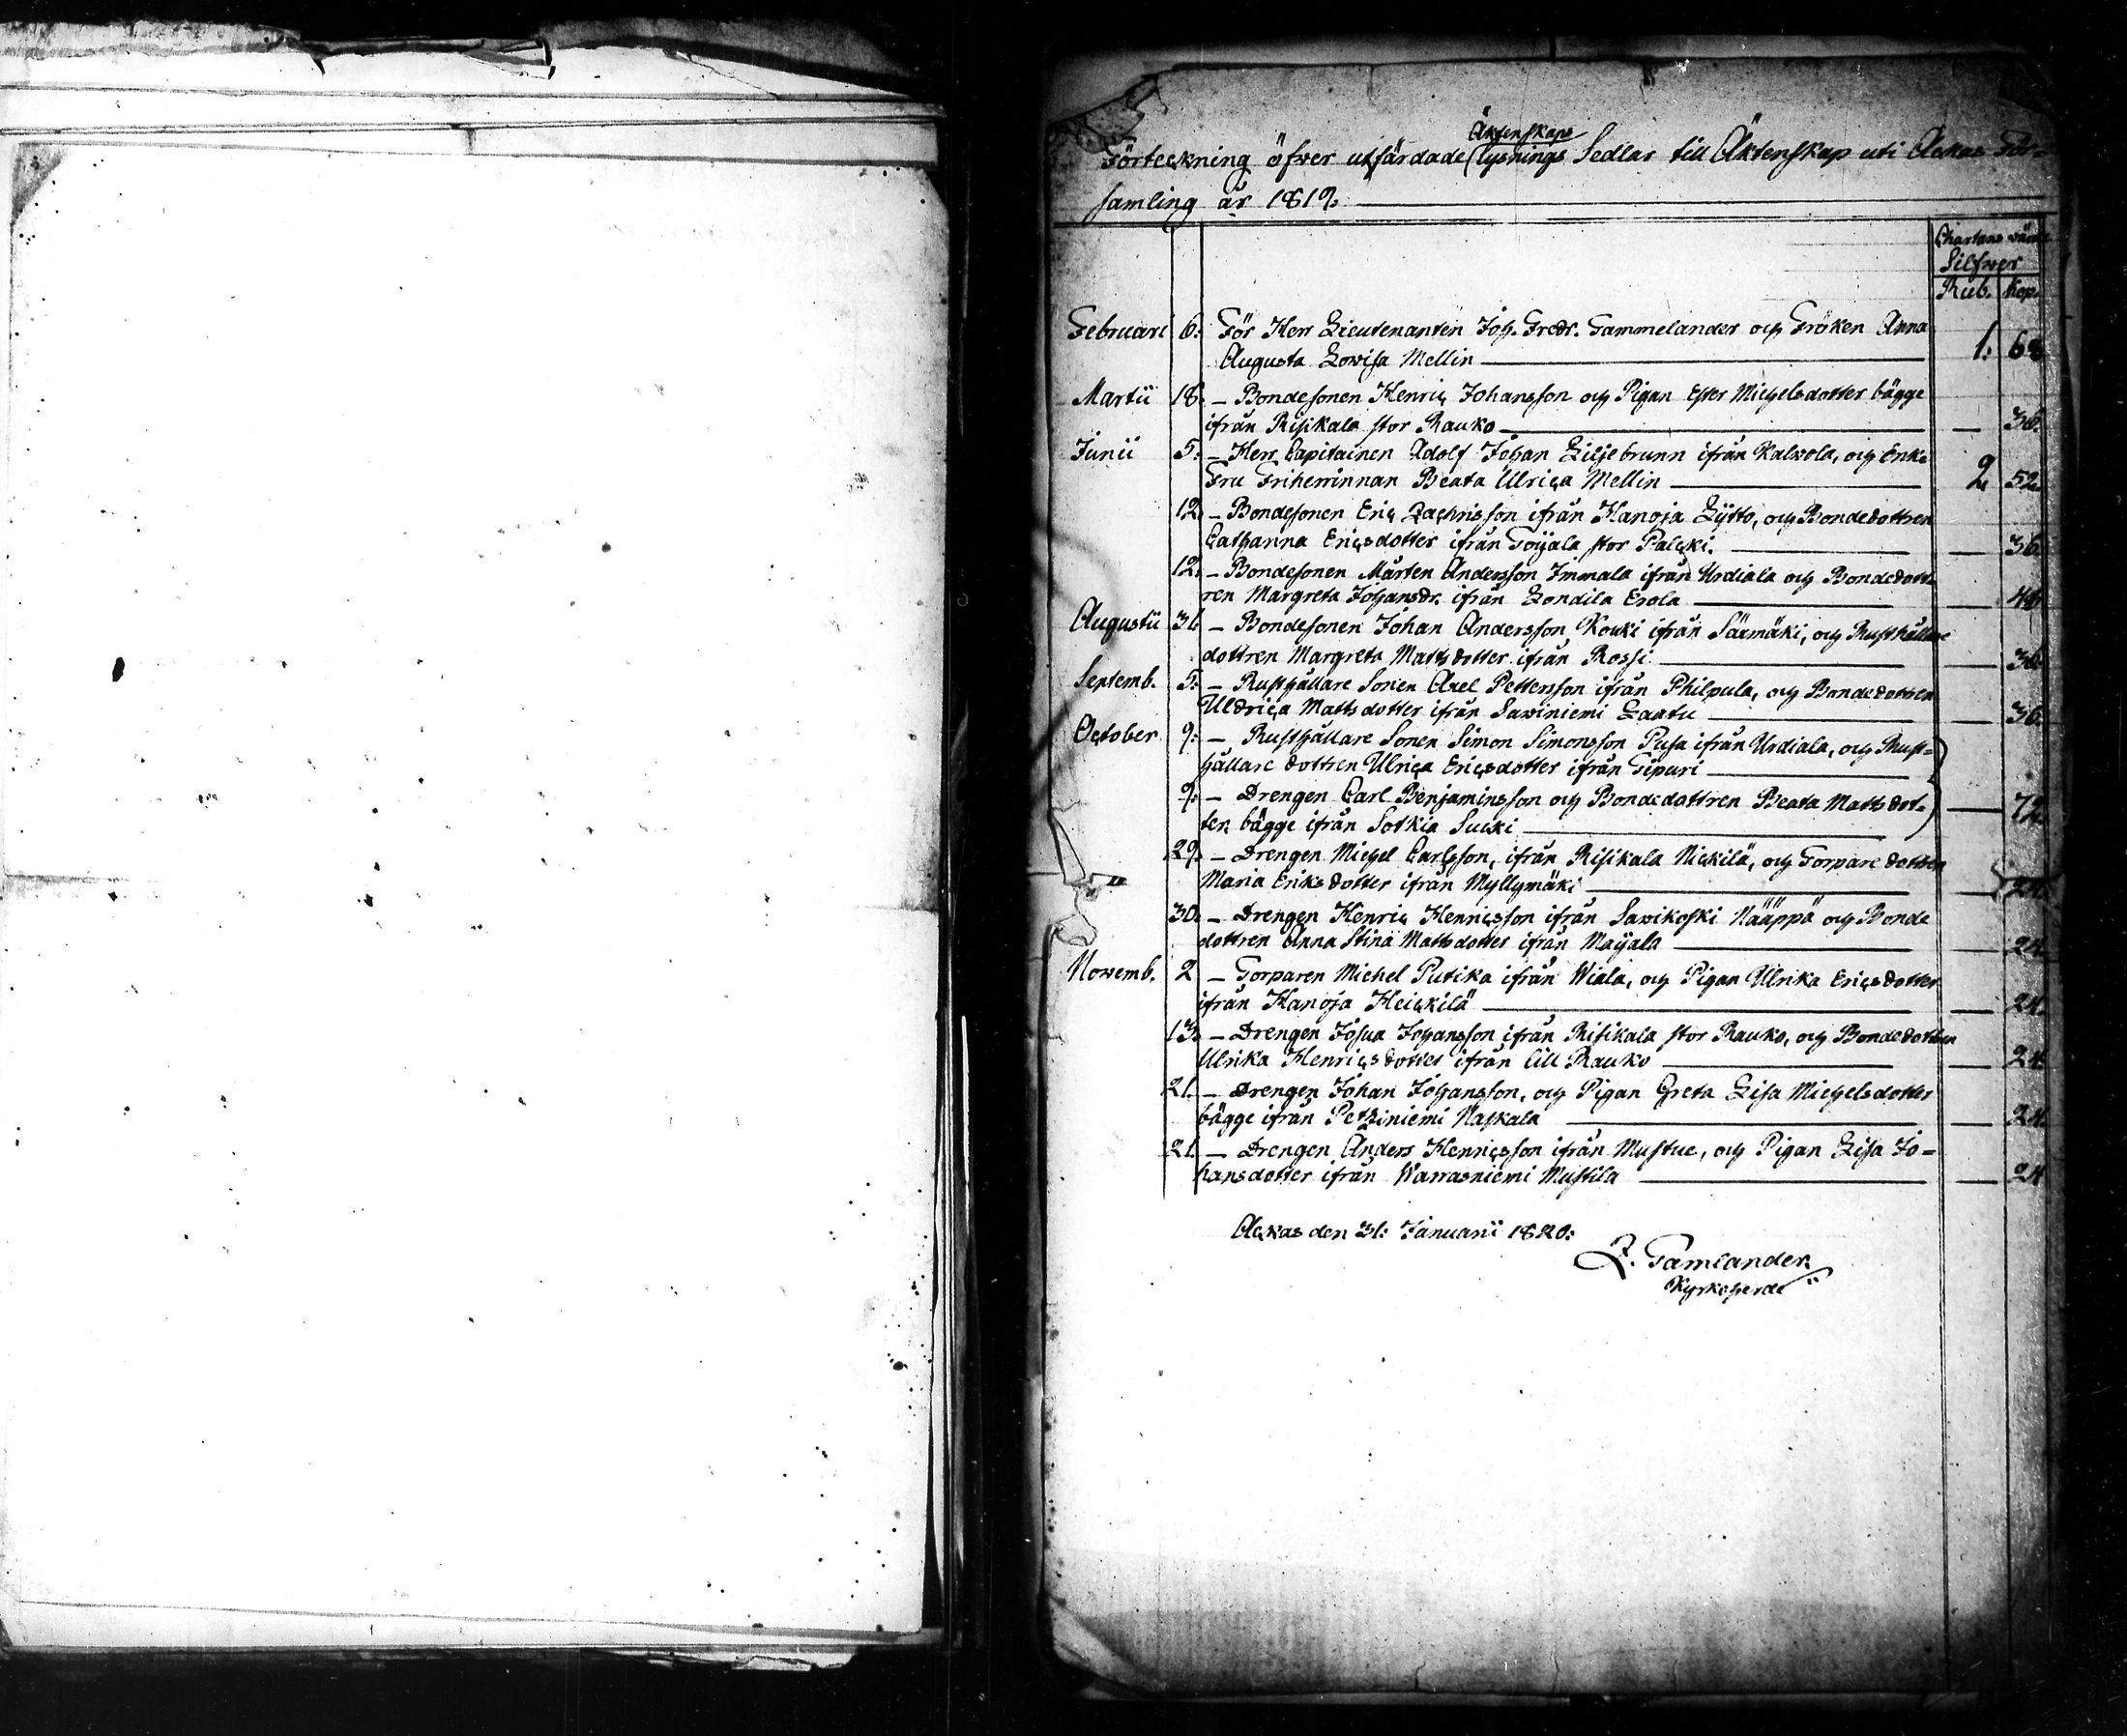 Äktenskaps
Förteckning öfwer utfärdade lysnings Sedlar till Äktenskap uti Ackas För-
samling år 1819.
Chartans värde
Silfwer
Rub. Kop.
Februari 6. För Herr Lieutenanten Joh. Fredr. Tammelander och Fröken Anna
Augusta Lowisa Mellin 1. 68
Martii 18. – Bondesonen Henric Johansson och Pigan Ester Michelsdotter bägge
ifrån Risikala stor Rauko — 36.
Junii 5. – Herr Capitainen Adolf Johan Liljebrunn ifrån Kalvola, och Enke
Fru Friherrinnan Beata Ulrica Mellin 2 52.
12. – Bondesonen Eric Zachrisson ifrån Kanoja Lytto, och Bondedottren
Catharina Ericsdotter ifrån Toijala stor Palcki. — 36.
12. – Bondesonen Mårten Andersson Immala ifrån Urdiala och Bondedott-
ren Margreta Johansdr. ifrån Londila Erola — 48
Augustii 31. – Bondesonen Johan Andersson Kouki ifrån Särmäki, och Rusthållare
dottren Margreta Mattsdotter ifrån Rossi — 36.
Septemb. 5. – Rusthållare Sonen Axel Pettersson ifrån Philpula, och Bondedottren
Uldrica Mattsdotter ifrån Sawiniemi Laatu — 36.
October 9. – Rusthållare Sonen Simon Simonsson Pusa ifrån Urdiala, och Rust-
hållare dottren Ulrica Ericsdotter ifrån Tipuri
9. – Drengen Carl Benjaminsson och Bondedottren Beata Mattsdot-
ter bägge ifrån Sotkia Sucki — 72.
29. – Drengen Michel Carlsson, ifrån Risikala Nickilä, och Torpare dottren
Maria Eriksdotter ifrån Myllymäki — 24.
30. – Drengen Henric Henricsson ifrån Sawikoski Nääppä och Bonde
dottren Anna Stina Mattsdotter ifrån Maijala 24.
Novemb. 2 – Torparen Michel Putika ifrån Wiala, och Pigan Ulrika Ericsdotter
ifrån Kanoja Heickilä — 24.
13. – Drengen Josua Johansson ifrån Risikala stor Rauko, och Bondedottren
Ulrika Henricsdotter ifrån lill Rauko — 24.
21. – Drengen Johan Johansson, och Pigan Greta Lisa Michelsdotter
bägge ifrån Petziniemi Naskala — 24.
21. – Drengen Anders Henricsson ifrån Mustue, och Pigan Lisa Jo-
hansdotter ifrån Warrasniemi Mustila — 24
Ackas den 31. Januarii 1820.
Z. Tamlander
Kyrkoherde